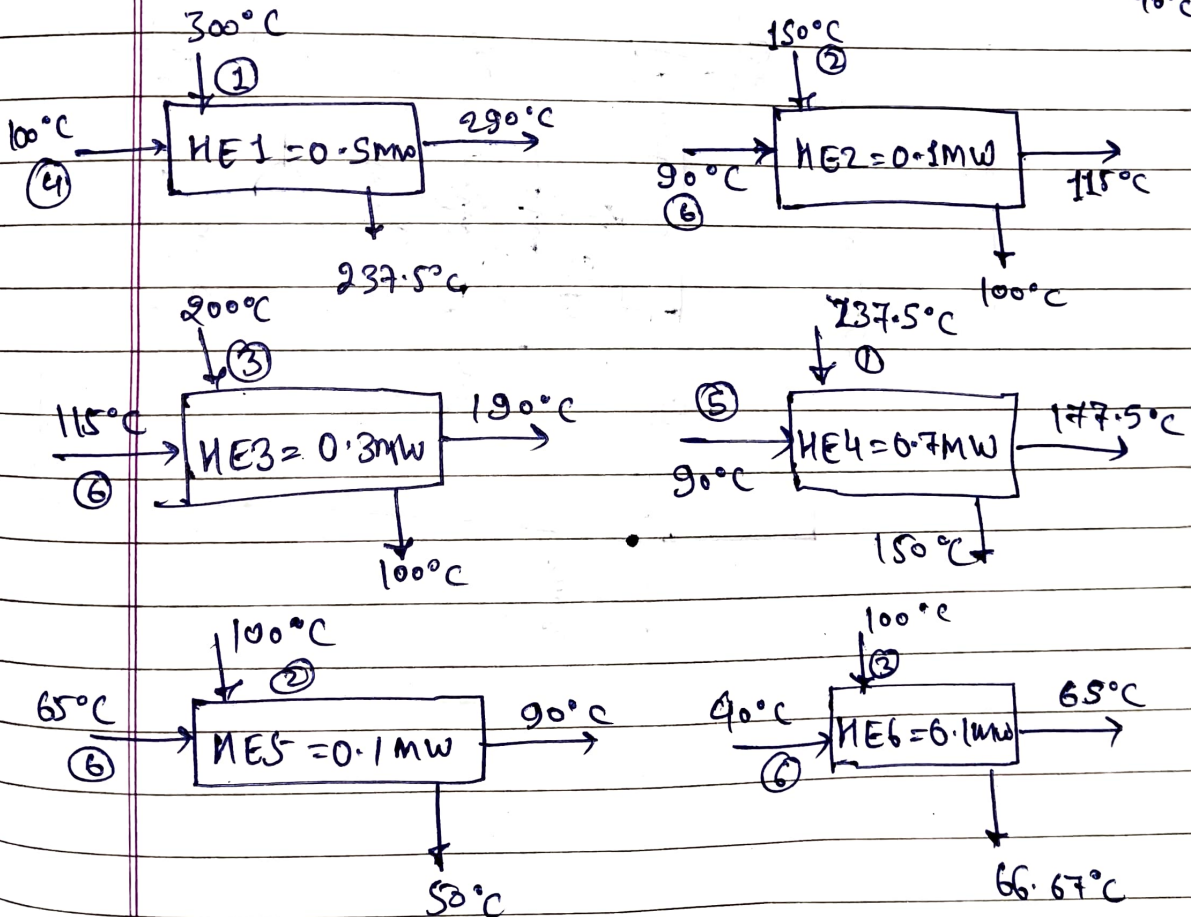 300°C
①
100°C
④
HE1 = 0.5MW
290°C
237.5°C
150°C
②
90°C
⑥
HE2 = 0.1MW
115°C
100°C
200°C
③
115°C
⑥
HE3 = 0.3MW
190°C
100°C
237.5°C
①
⑤
90°C
HE4 = 0.7MW
177.5°C
150°C
100°C
②
65°C
⑥
HE5 = 0.1MW
90°C
50°C
100°C
③
40°C
⑥
HE6 = 0.1MW
65°C
66.67°C